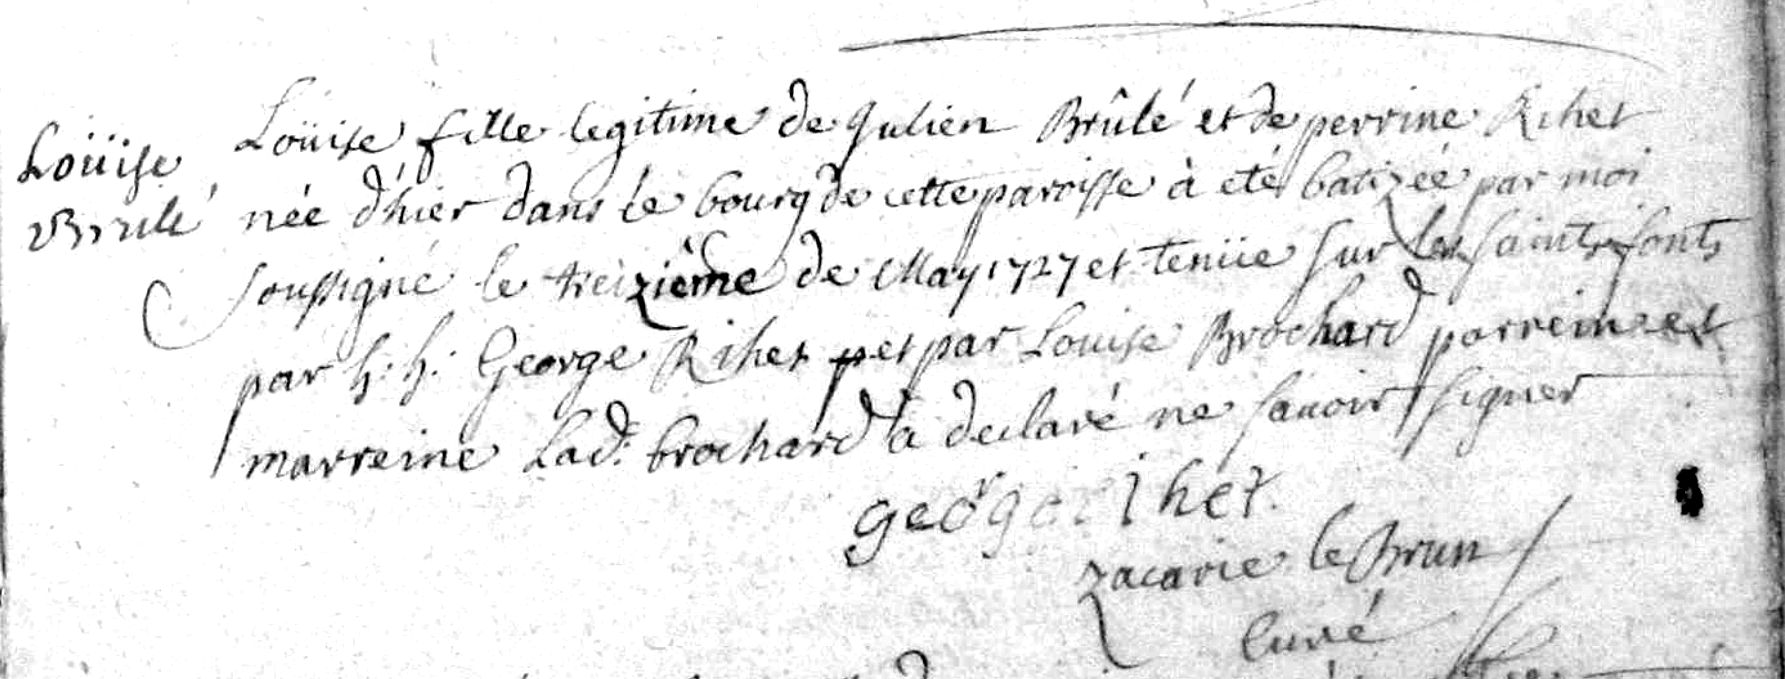 Loüise
Brulé
Loüise fille legitime de Julien Brûlé et de perrine Rihet
née d'hier dans le bourg de cette paroisse à eté batizée par moi
soussigné le treizième de May 1727 et tenüe sur les saints fonts
par h. h. George Rihet et par Louise Brochard parrein et
marreine Lad. brochard a declaré ne savoir signer
george rihet.
zacarie le Brun
Curé